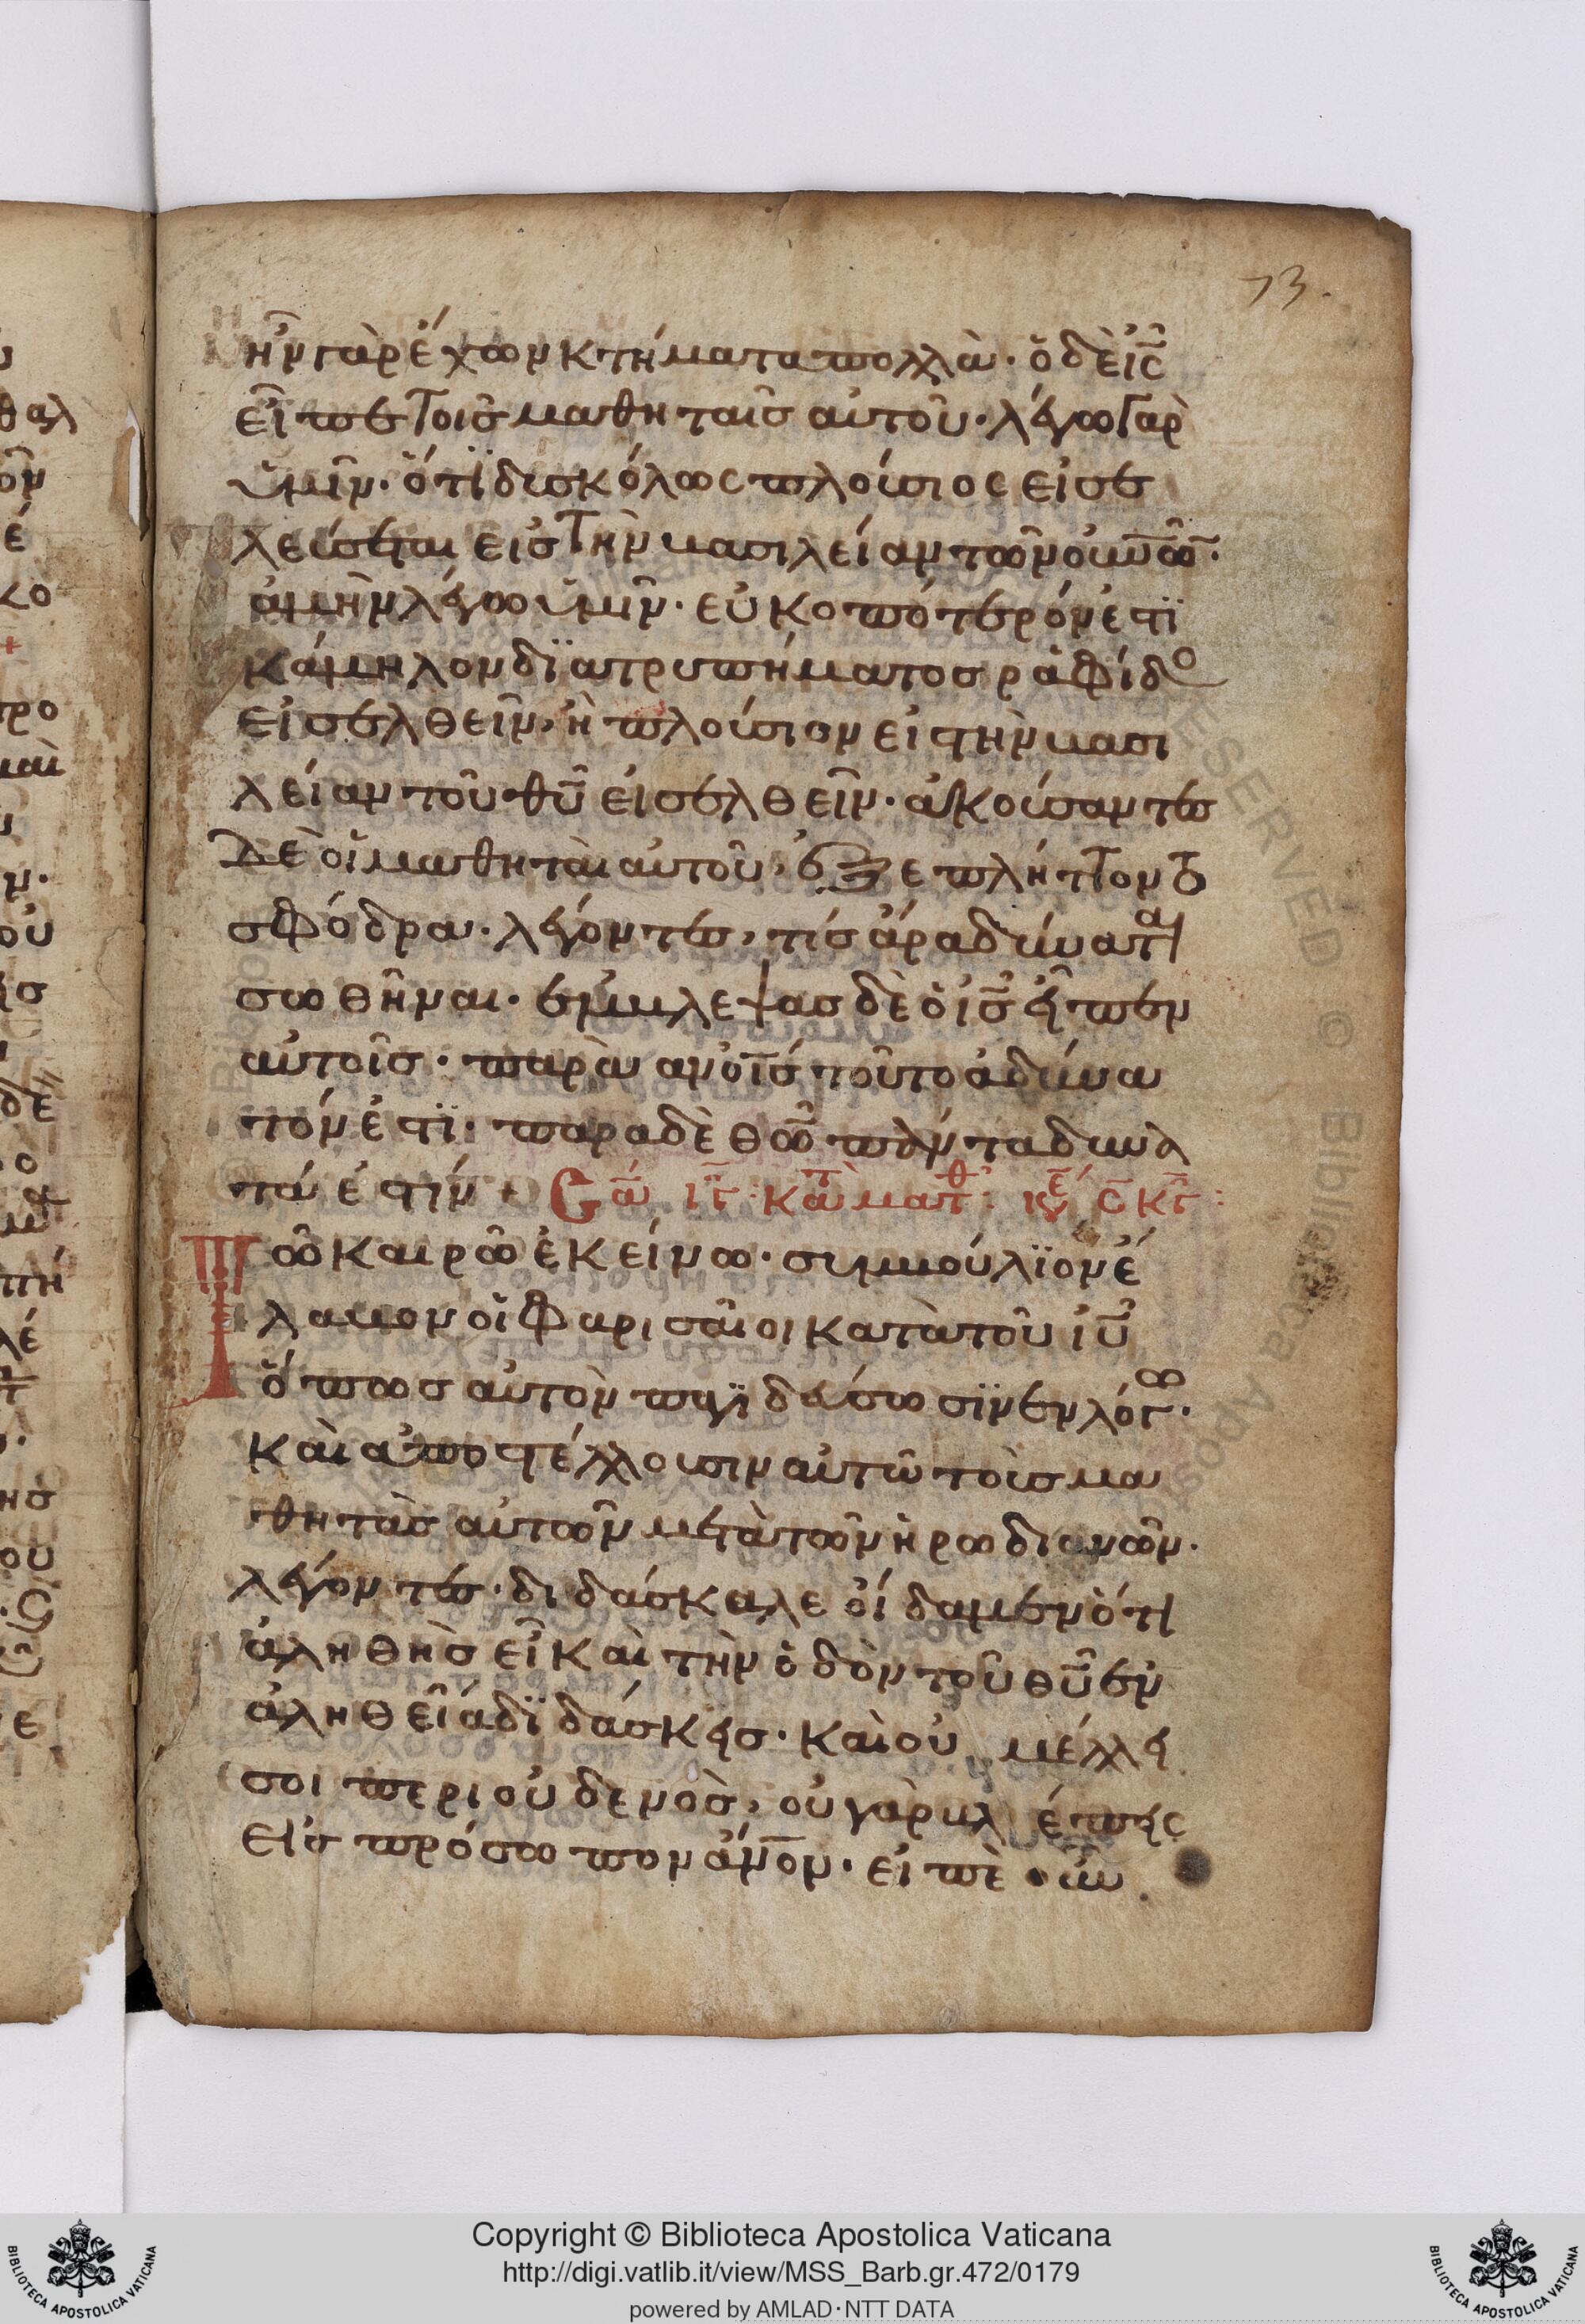 73.
ἦν γὰρ ἔχων κτήματα πολλὰ· ὁ δὲ ἰς
εἶπε τοῖς μαθηταῖς αὐτοῦ· λέγω γὰρ
ὑμῖν· ὅτϊ δυσκόλως πλούσιος εἰσε
λεύσεται εἰς τὴν βασιλείαν τῶν οὐνῶ·
ἀμὴν λέγω ὑμῖν· εὐκοπότερόν ἐστϊ
κάμηλον δϊατρυπήματος ράφίδο
εἰσελθεῖν, ἢ πλούσιον εἰ τὴν βασι
λείαν τοῦ θῦ εἰσελθεῖν· ἀκούσαντες
δὲ οἱ μαθηταὶ αὐτοῦ, ἐξεπλήττοντο
σφόδρα· λέγοντες, τίς ἄρα δύναται
σωθῆναι· ἐμβλεψας δὲ ὁ ἰς εἶπεν
αὐτοῖς· παρὰ ανοῖς τοῦτο ἀδύνα
τόν ἐστϊ· παρα δὲ θῶ πάντα δυνα
τά ἐστίν +
Τῶ καιρῶ ἐκείνω· συμβούλϊον ἔ
λαβον οἱ φαρισαῖοι κατὰ τοῦ ἰυ
ὅπως αὐτὸν παγϊδεύσωσϊν εν λόγω·
καὶ ἀποστέλλουσιν αὐτῶ τοὺς μα
θητὰς αὐτῶν μετὰ τῶν ἡρωδιανῶν·
λέγοντες· διδάσκαλε οἴδαμεν ὅτι
ἀληθὴς εἶ καὶ τὴν ὁδὸν τοῦ θῦ ἐν
ἀληθεία δϊδάσκεις· καὶ οὐ μέλλει
σοι περι οὐδενὸς, οὐ γὰρ βλέπεις
εἰς πρόσωπον ἀνον· εἰπὲ οὖν
Copyright © Biblioteca Apostolica Vaticana
http://digi.vatlib.it/view/MSS_Barb.gr.472/0179
powered by AMLAD·NTT DATA
BIBLIOTECA APOSTOLICA VATICANA
BIBLIOTECA APOSTOLICA VATICANA